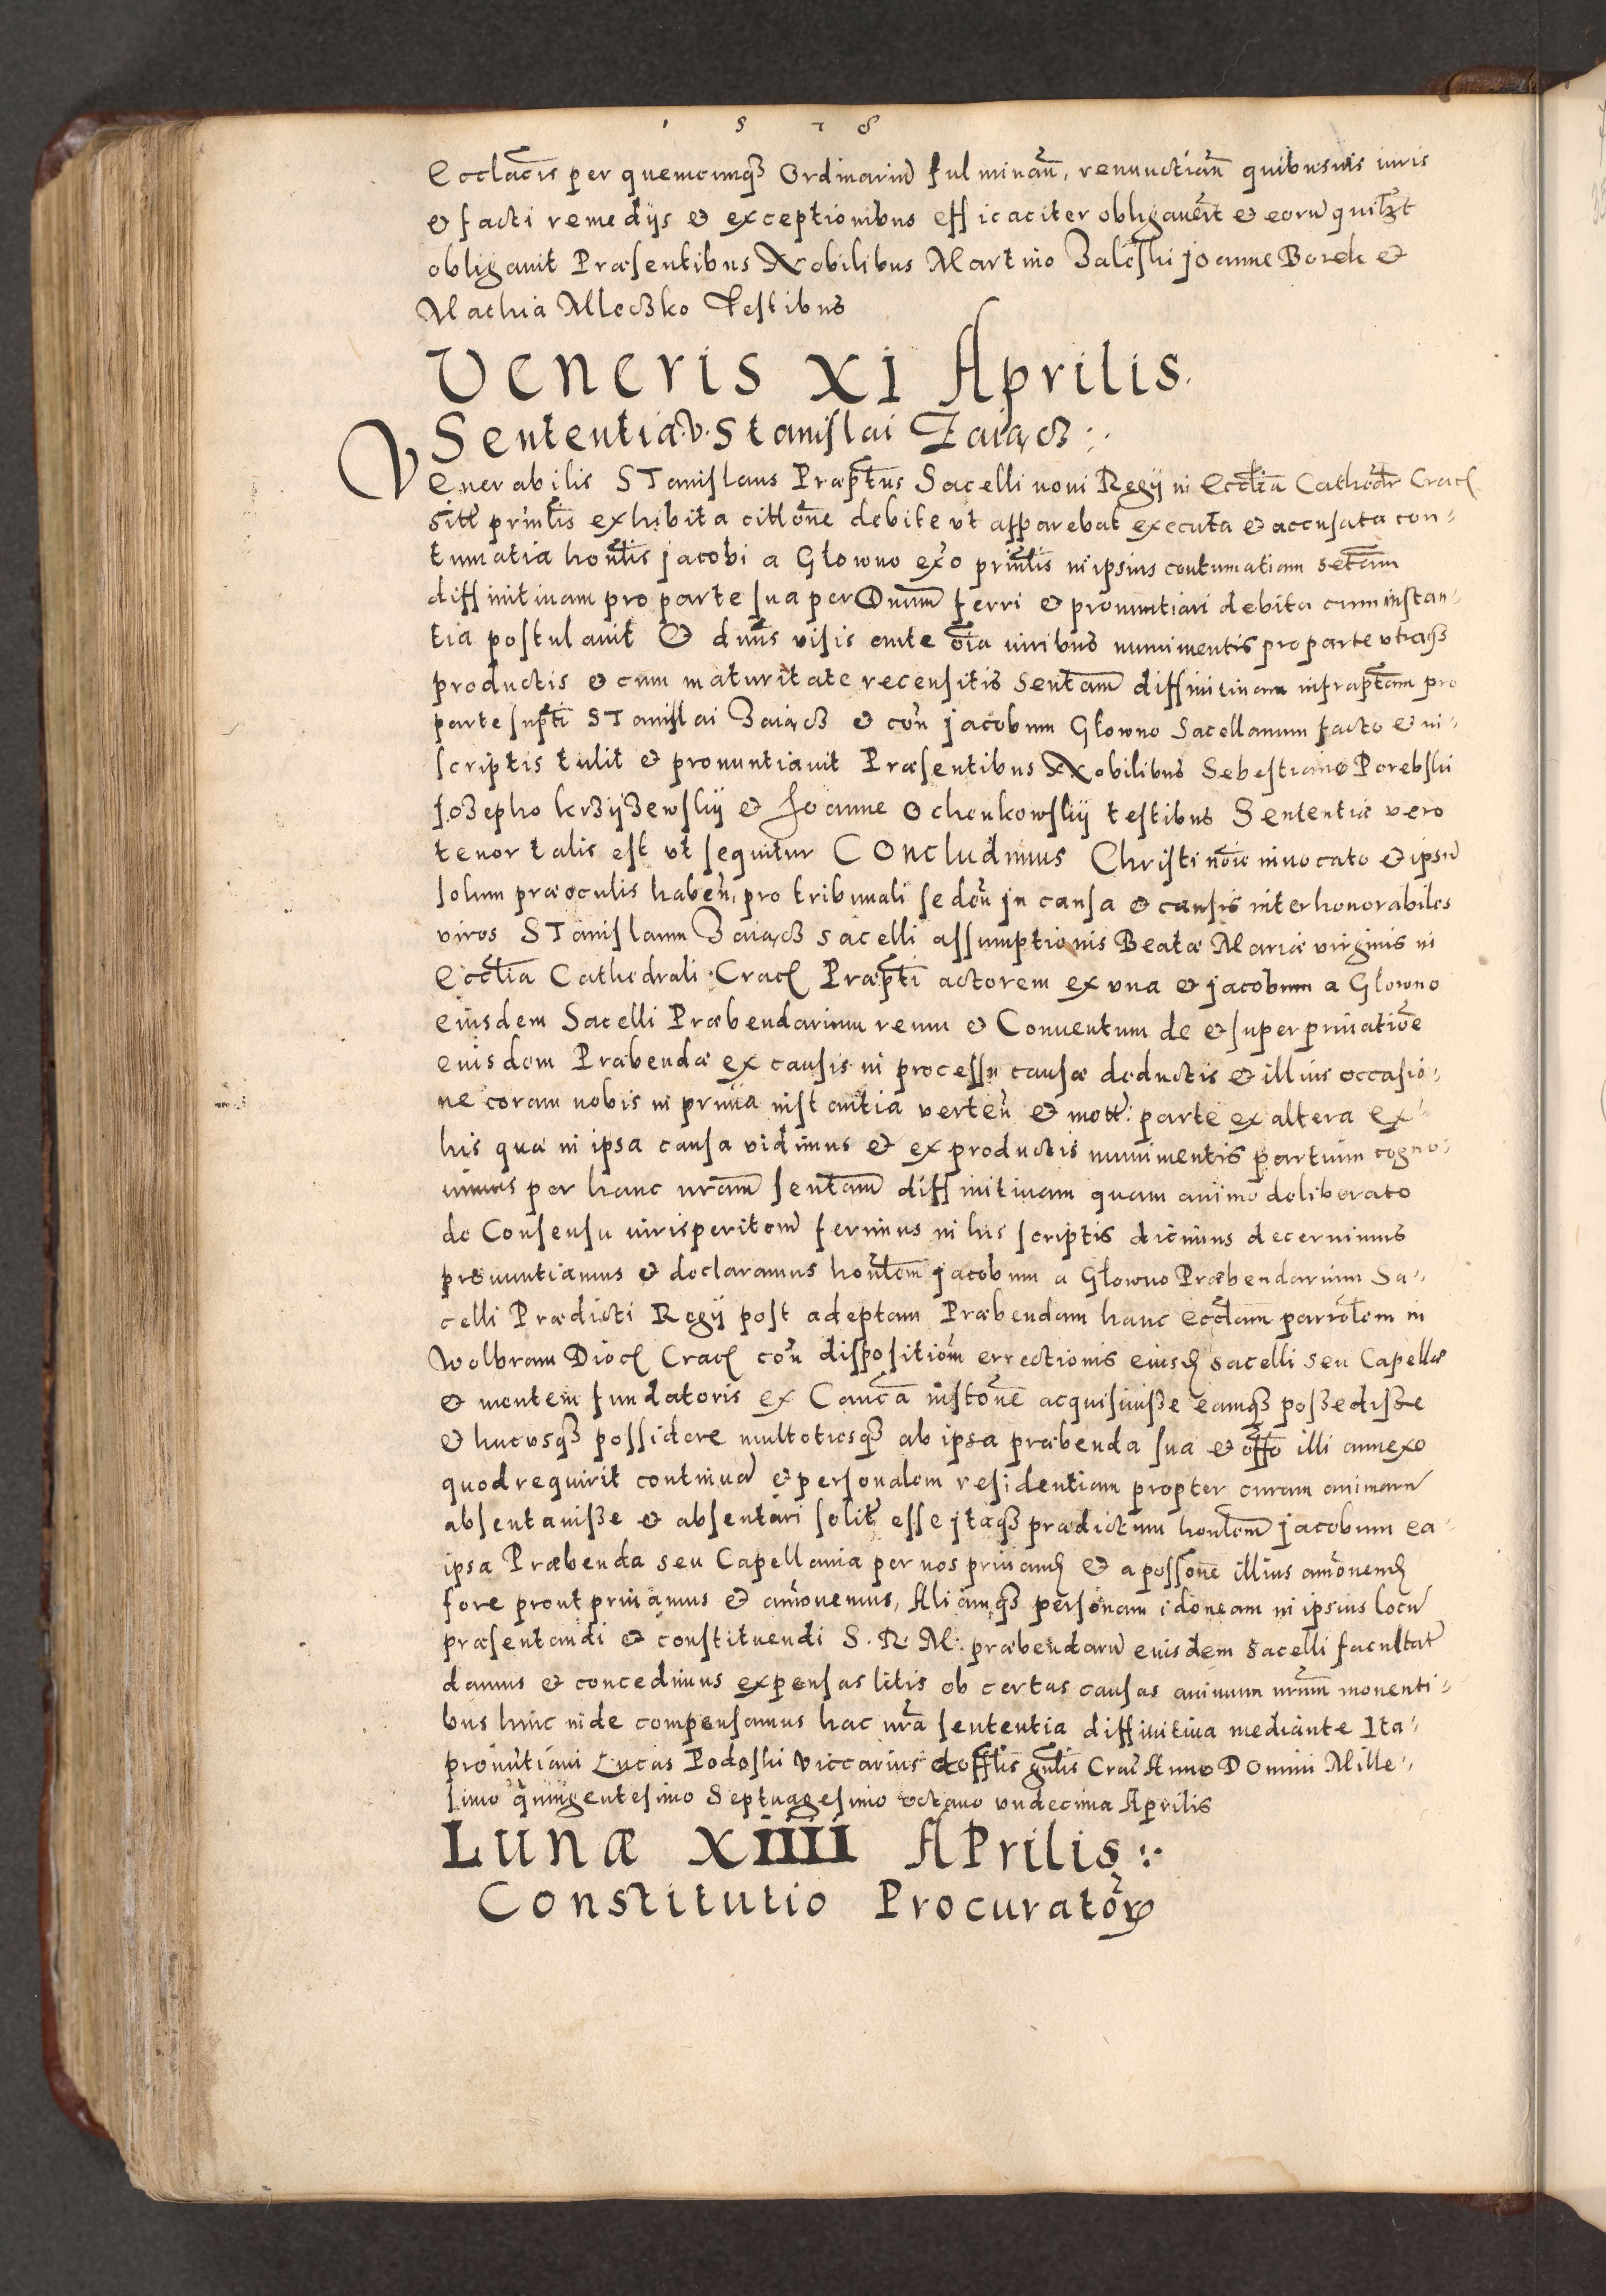 1 5 7 8
Eccl̃acis per quemcunqȝ Ordinariũ fulminañ, renunctiañ quibusuis iuris
& facti remedijs & exceptionibus efficaciter obligauer̃t & eorũ quil3t
obligauit Præsentibus Nobilibus Martino Zaleski joanne Borek &
Mathia Mleczko Testibus
Veneris XI Aprilis.
Sententia.v.Stanislai Zaiącz
Venerabilis STanislaus Præpt̃us Sacelli noui Regij in Eccl̃ia Cathedr̃ Crac
sitt̃ prinl̃is exhibita citt̃one debite vt apparebat executa & accusata con-
tumatia honl̃is jacobi a Glowno ex̃o prinl̃is in ipsius contumatiam set̃am
diffinitiuam pro parte sua per Dnum̃ ferri & pronuntiari debita cum instan-
tia postulauit & dnũs visis ante õia iuribus munimentis pro parte vtraqȝ
productis & cum maturitate recensitis Sentam̃ diffinitiuam infrapt̃am pro
parte supt̃i STanislai Zaiącz & coñ jacobum Glowno Sacellanum facto & in-
scriptis tulit & pronuntiauit Præsentibus Nobilibus Sebestiano Porebski
jozepho krzyzewskij & Joanne Ochenkowskij testibus Sententiæ vero
tenor talis est vt sequitur COncludimus Christi nõie inuocato & ipsũ
solum præ oculis habeñ, pro tribunali sedeñ jn causa & causis inter honorabiles
viros STanislaum Zaiącz sacelli assumptionis Beatæ Mariæ virginis in
Eccl̃ia Cathedrali Crac Præpt̃i actorem ex vna & jacobum a Glowno
eiusdem Sacelli Præbendarium reum & Conuentum de & super priuatiõe
eiusdem Præbendæ ex causis in processu causæ deductis & illius occasio-
ne coram nobis in prima instantia verteñ & mott̃: parte ex altera ex
his quæ in ipsa causa vidimus & ex productis munimentis partium cogno-
uimus per hanc nr̃am sentam̃ diffinitiuam quam animo deliberato
de Consensu iurisperitorũ ferimus in his scriptis dicimus decernimus
pronuntiamus & declaramus honl̃em jacobum a Glowno Præbendarium Sa-
celli Prædicti Regij post adeptam Præbendam hanc eccl̃am parrol̃em in
Wolbram Dioc Crac coñ dispositiõm errectionis eiusd sacelli seu Capellæ
& mentem fundatoris ex Cauc̃a instõne acquisiuisse eamqȝ possedisse
& hucusqȝ possidere multotiesqȝ ab ipsa præbenda sua & off̃o illi annexo
quod requirit continuã & personalem residentiam propter curam animarũ
absentauisse & absentari solit̃ esse jtaqȝ prædictum honl̃em jacobum ea
ipsa Præbenda seu Capellania per nos priuand & a possõne illius amouend
fore prout priuamus & amouemus, Aliamqȝ personam idoneam in ipsius locũ
præsentandi & constituendi S. R. M. præbendarũ eiusdem sacelli facultat̃
damus & concedimus expensas litis ob certas causas animum nr̃um mouenti-
bus hinc inde compensamus hac nr̃a sententia diffinitiua mediante Ita-
pronũtiaui Lucas Podoski Viccarius & offl̃is gnl̃is Crac̃ Anno DOmini Mille-
simo quingentesimo Septuagesimo octauo vndecima Aprilis
LUNÆ XIIII APrilis
Constitutio Procuratõrꝝ